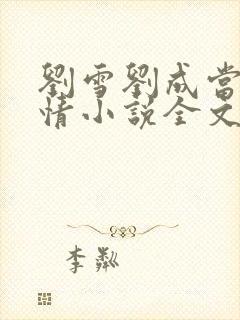 劉雪劉成當
情小說全文
李粼